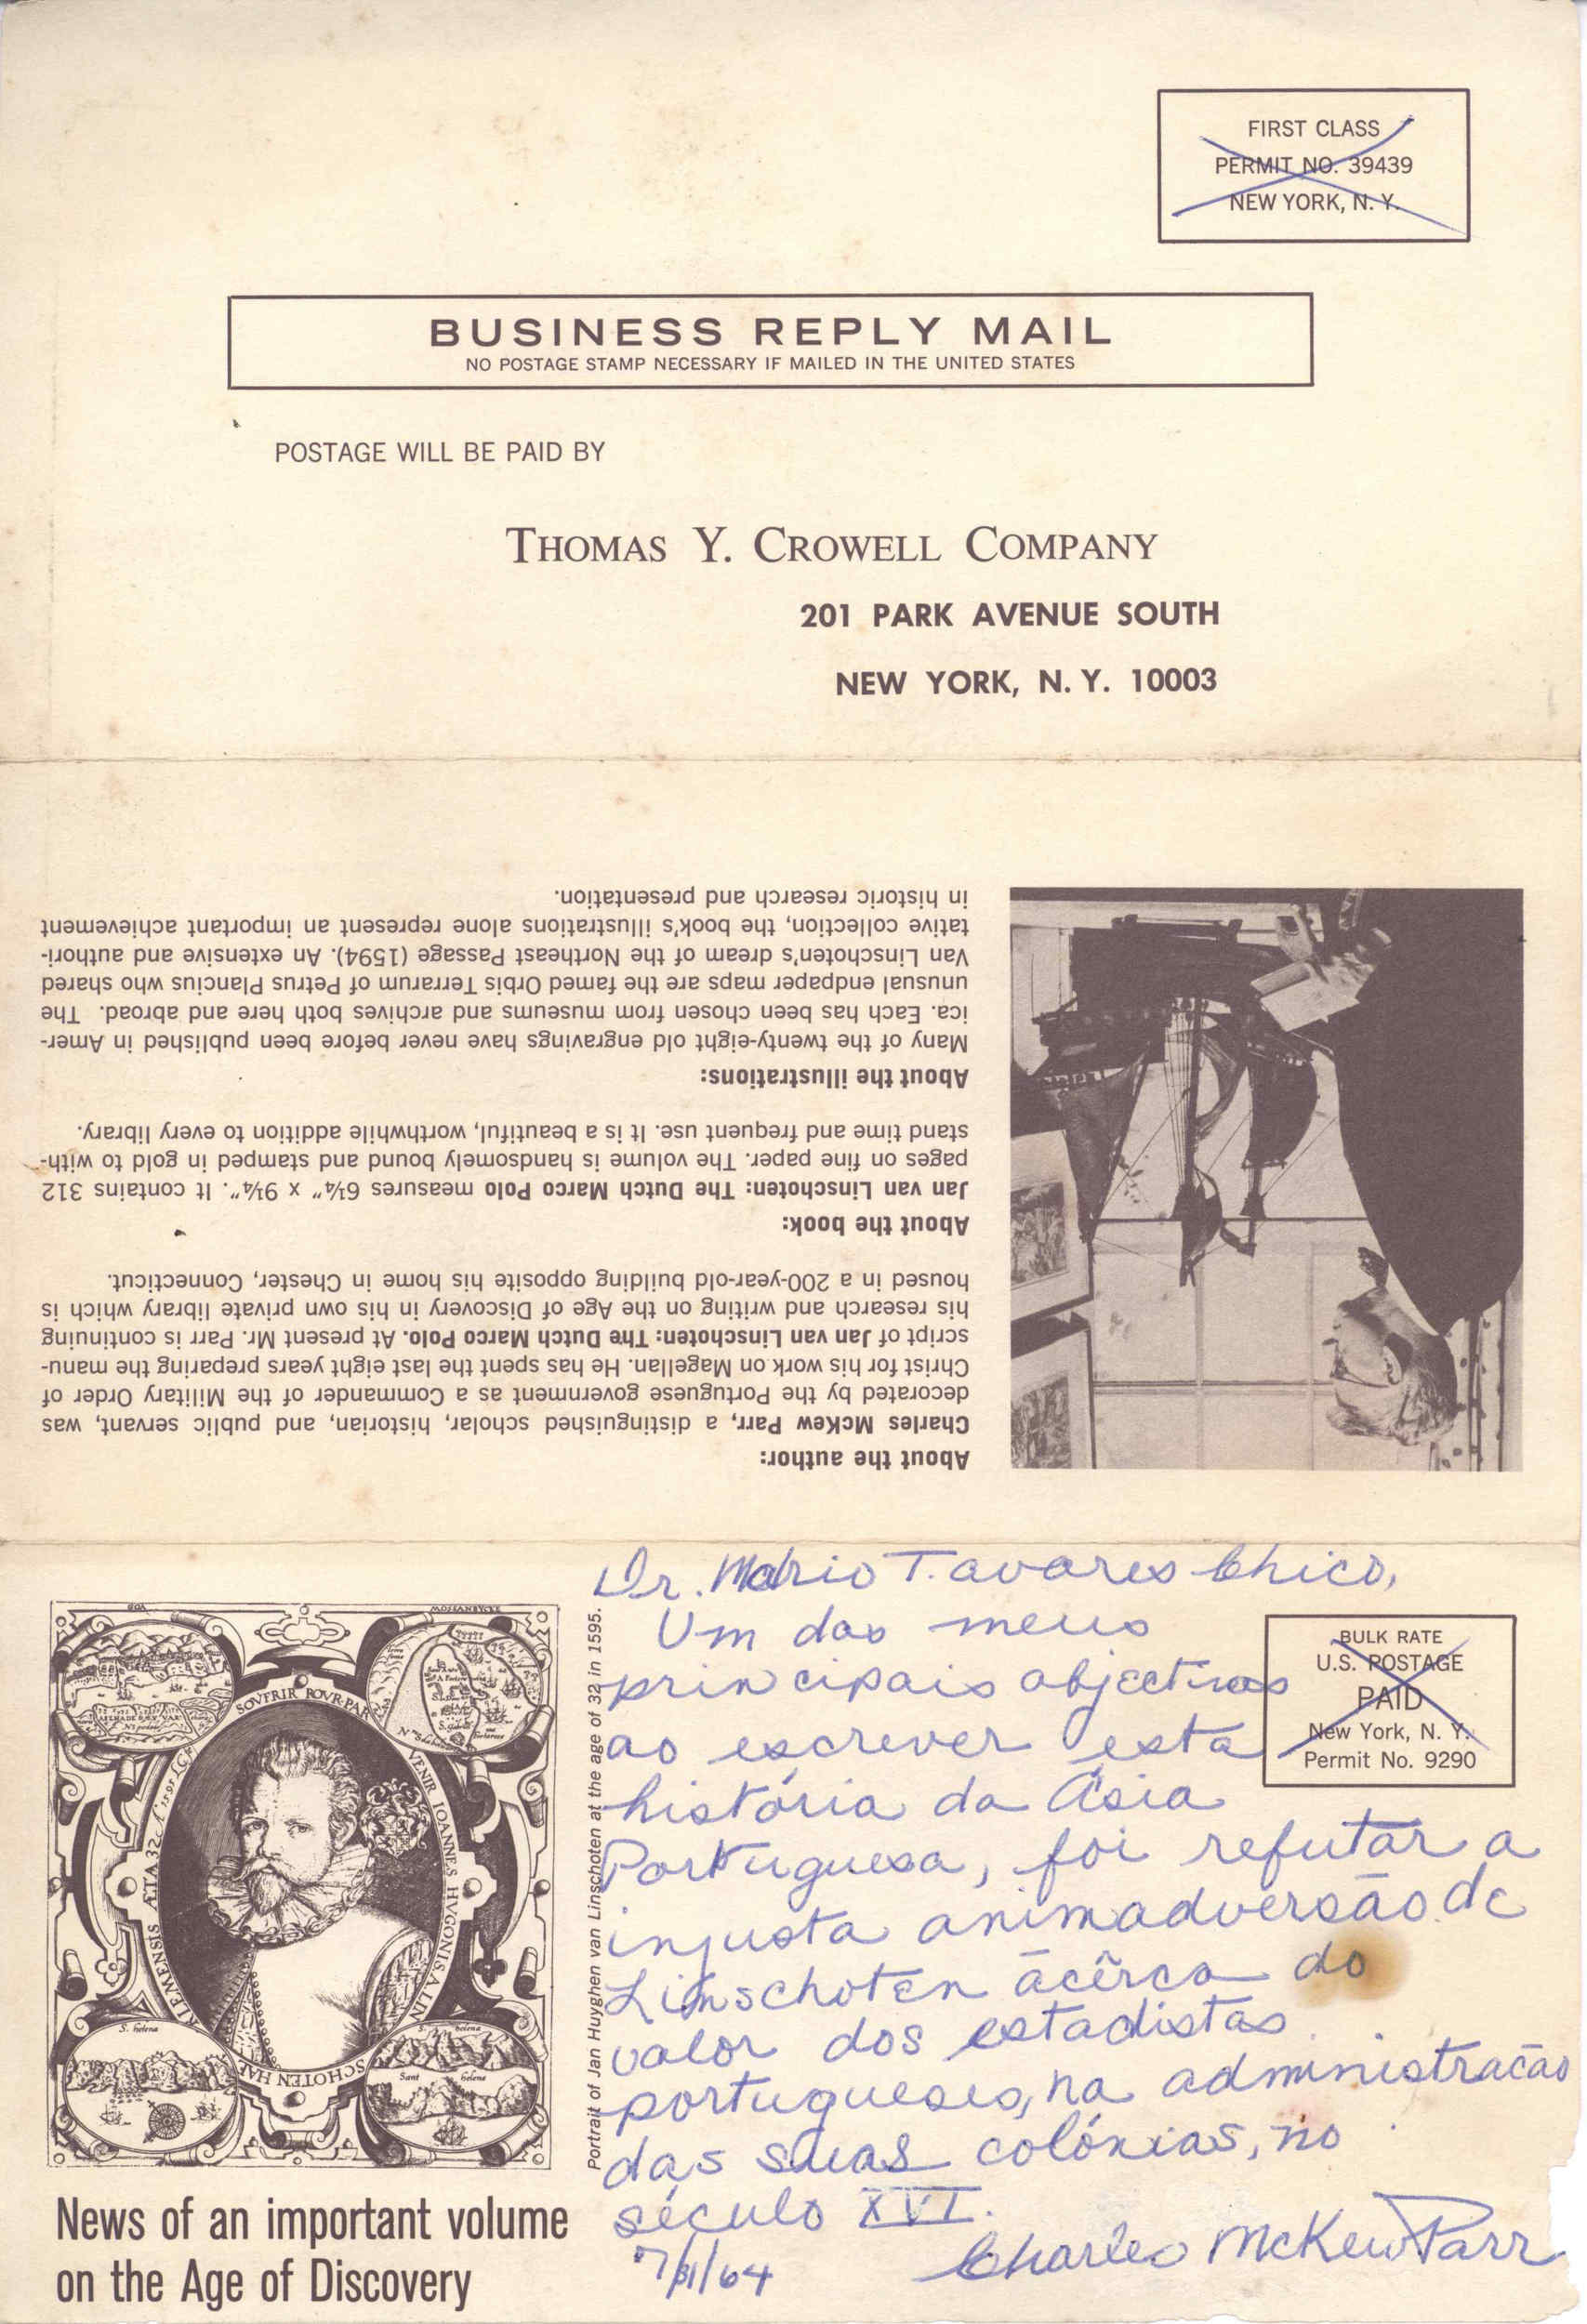 FIRST CLASS
PERMIT NO. 39439
NEW YORK, N. Y.
BUSINESS REPLY MAIL
NO POSTAGE STAMP NECESSARY IF MAILED IN THE UNITED STATES
POSTAGE WILL BE PAID BY
THOMAS Y. CROWELL COMPANY
201 PARK AVENUE SOUTH
NEW YORK, N. Y. 10003
About the author:
Charles McKew Parr, a distinguished scholar, historian, and public servant, was
decorated by the Portuguese government as a Commander of the Military Order of
Christ for his work on Magellan. He has spent the last eight years preparing the manu-
script of Jan van Linschoten: The Dutch Marco Polo. At present Mr. Parr is continuing
his research and writing on the Age of Discovery in his own private library which is
housed in a 200-year-old building opposite his home in Chester, Connecticut.
About the book:
Jan van Linschoten: The Dutch Marco Polo measures 6¼" x 9¼". It contains 312
pages on fine paper. The volume is handsomely bound and stamped in gold to with-
stand time and frequent use. It is a beautiful, worthwhile addition to every library.
About the illustrations:
Many of the twenty-eight old engravings have never before been published in Amer-
ica. Each has been chosen from museums and archives both here and abroad. The
unusual endpaper maps are the famed Orbis Terrarum of Petrus Plancius who shared
Van Linschoten's dream of the Northeast Passage (1594). An extensive and authori-
tative collection, the book's illustrations alone represent an important achievement
in historic research and presentation.
GOA
MOSSANBYCKE
SOVFRIR POVR PAR
VENIR IOANNES HVGONIS A LIN
SCHOTEN HAE
RLEMENSIS ÆTA 32
S. helena
Sant helena
Portrait of Jan Huyghen van Linschoten at the age of 32 in 1595.
BULK RATE
U.S. POSTAGE
PAID
New York, N. Y.
Permit No. 9290
Dr. Mario T. avares Chico,
Um dos meus
principais objectivos
ao escrever esta
história da Ásia
Portuguesa, foi refutar a
injusta animadversão de
Linschoten ācêrca do
valor dos estadistas
portugueses, na administracāo
das suas colónias, no
século XVI.
7/31/64 Charles McKew Parr
News of an important volume
on the Age of Discovery